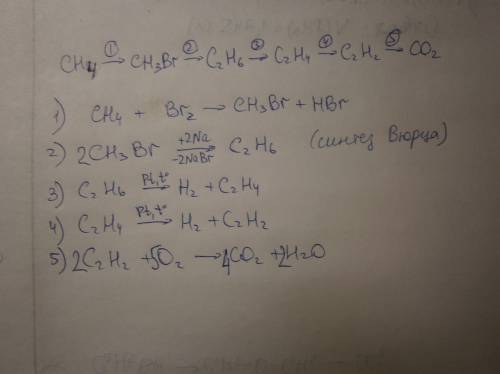 CH4 ①→ CH3Br ②→ C2H6 ③→ C2H4 ④→ C2H2 ⑤→ CO2
1) CH4 + Br2 → CH3Br + HBr
2) 2CH3Br +2Na → -2NaBr C2H6 (синтез Вюрца)
3) C2H6 Pt,t° → H2 + C2H4
4) C2H4 Pt,t° → H2 + C2H2
5) 2C2H2 + 5O2 → 4CO2 + 2H2O